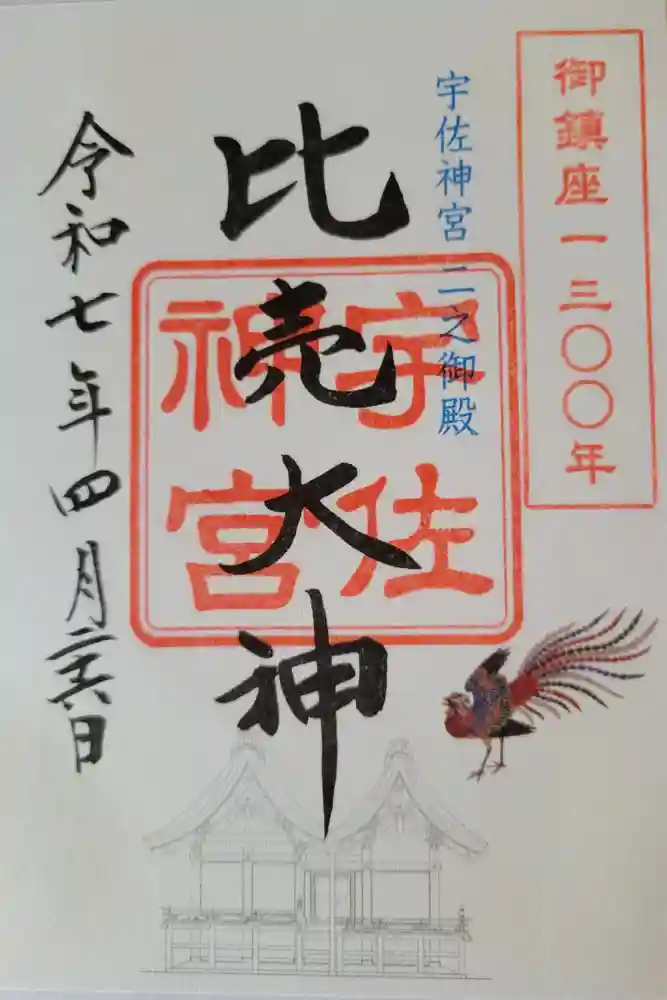 御鎮座一三〇〇年
宇佐神宮 二之御殿
比売大神
宇佐
神宮
令和七年四月二十六日